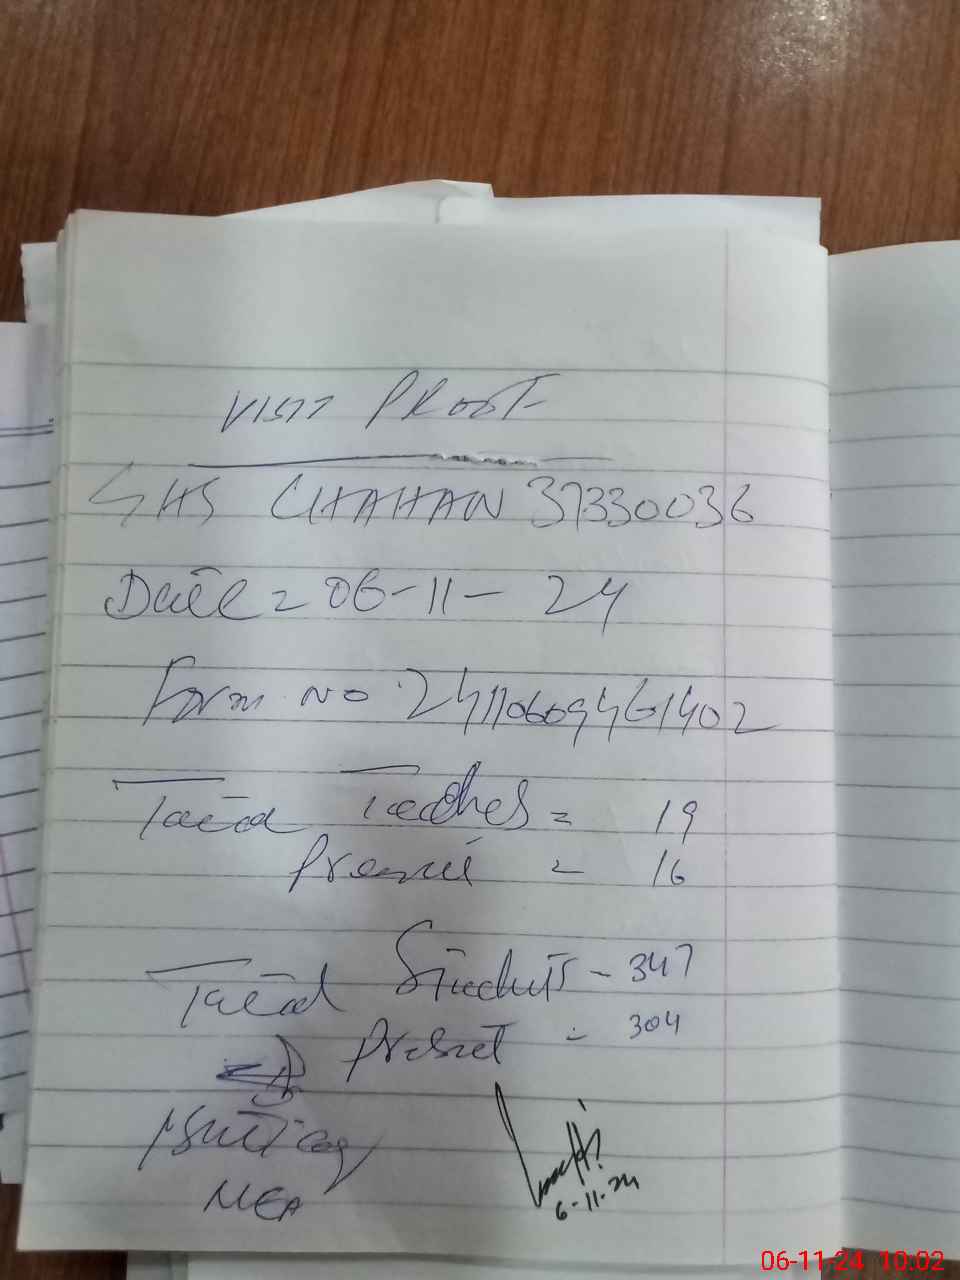 VISIT PROOF
GHS CHAHAN 37330036
Date = 06-11-24
Form No. 24110609461402
Total Teachers = 19
Present = 16
Total Students - 347
Present = 304
MEA
6-11-24
06-11-24 10:02